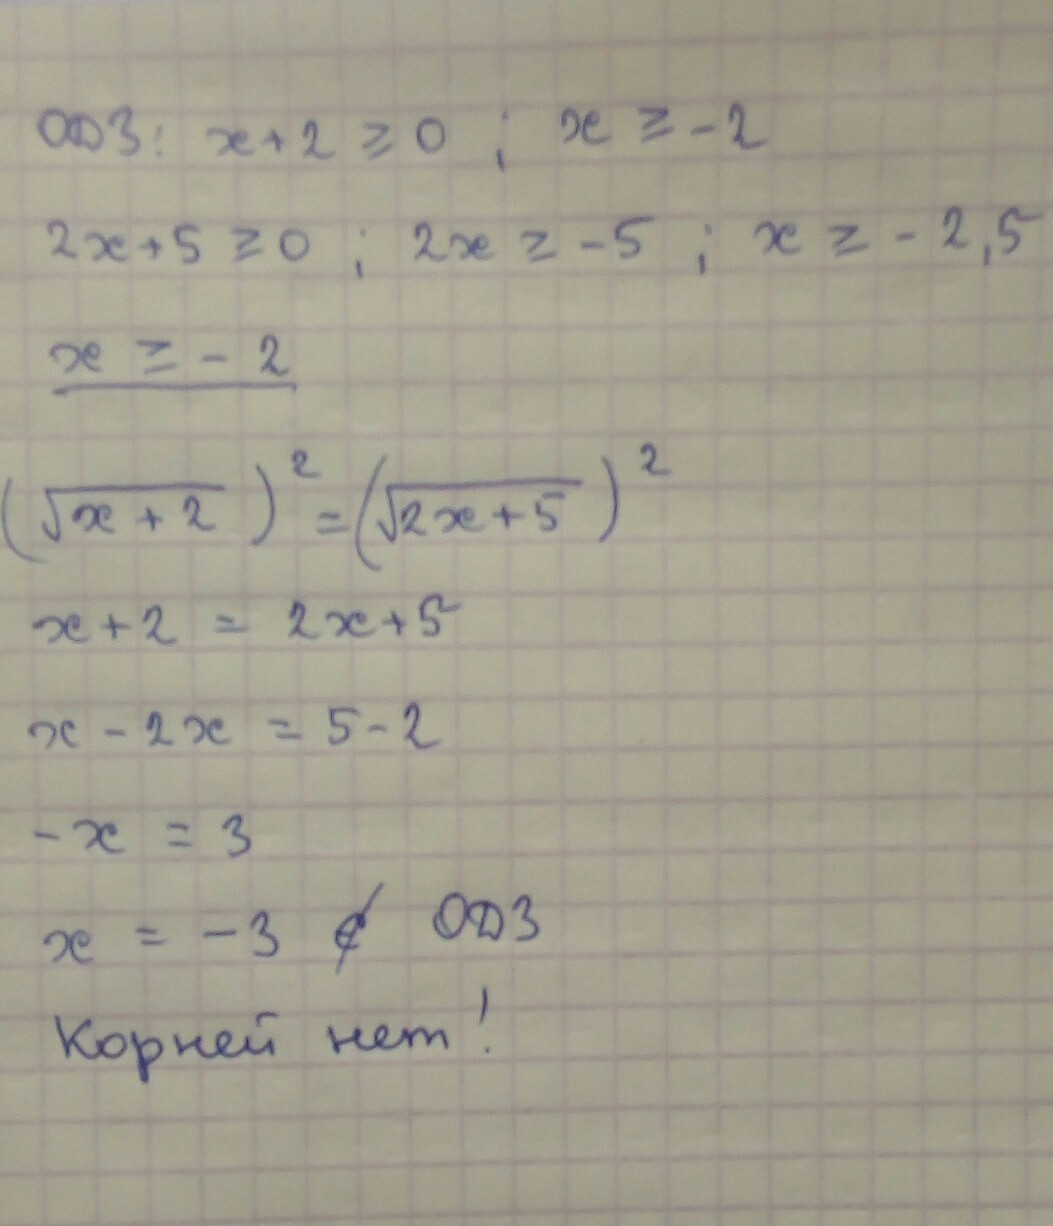 ОДЗ: x+2 ≥ 0 ; x ≥ -2
2x+5 ≥ 0 ; 2x ≥ -5 ; x ≥ -2,5
x ≥ -2
(√(x+2))² = (√(2x+5))²
x+2 = 2x+5
x - 2x = 5-2
-x = 3
x = -3 ∉ ОДЗ
Корней нет!